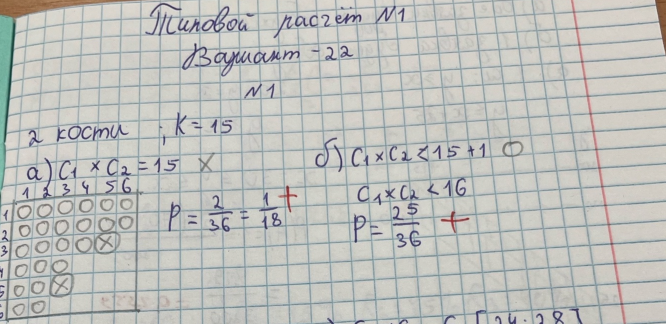 Типовой расчёт №1
Вариант - 22
№1
2 кости ; K = 15
а) C₁ × C₂ = 15 ×
б) C₁ × C₂ < 15 + 1 ○
1 2 3 4 5 6
1 ○ ○ ○ ○ ○ ○
2 ○ ○ ○ ○ ○ ○
3 ○ ○ ○ ○ ⊗
4 ○ ○ ○
5 ○ ○ ⊗
○ ○
P = 2/36 = 1/18 +
C₁ × C₂ < 16
P = 25/36 +